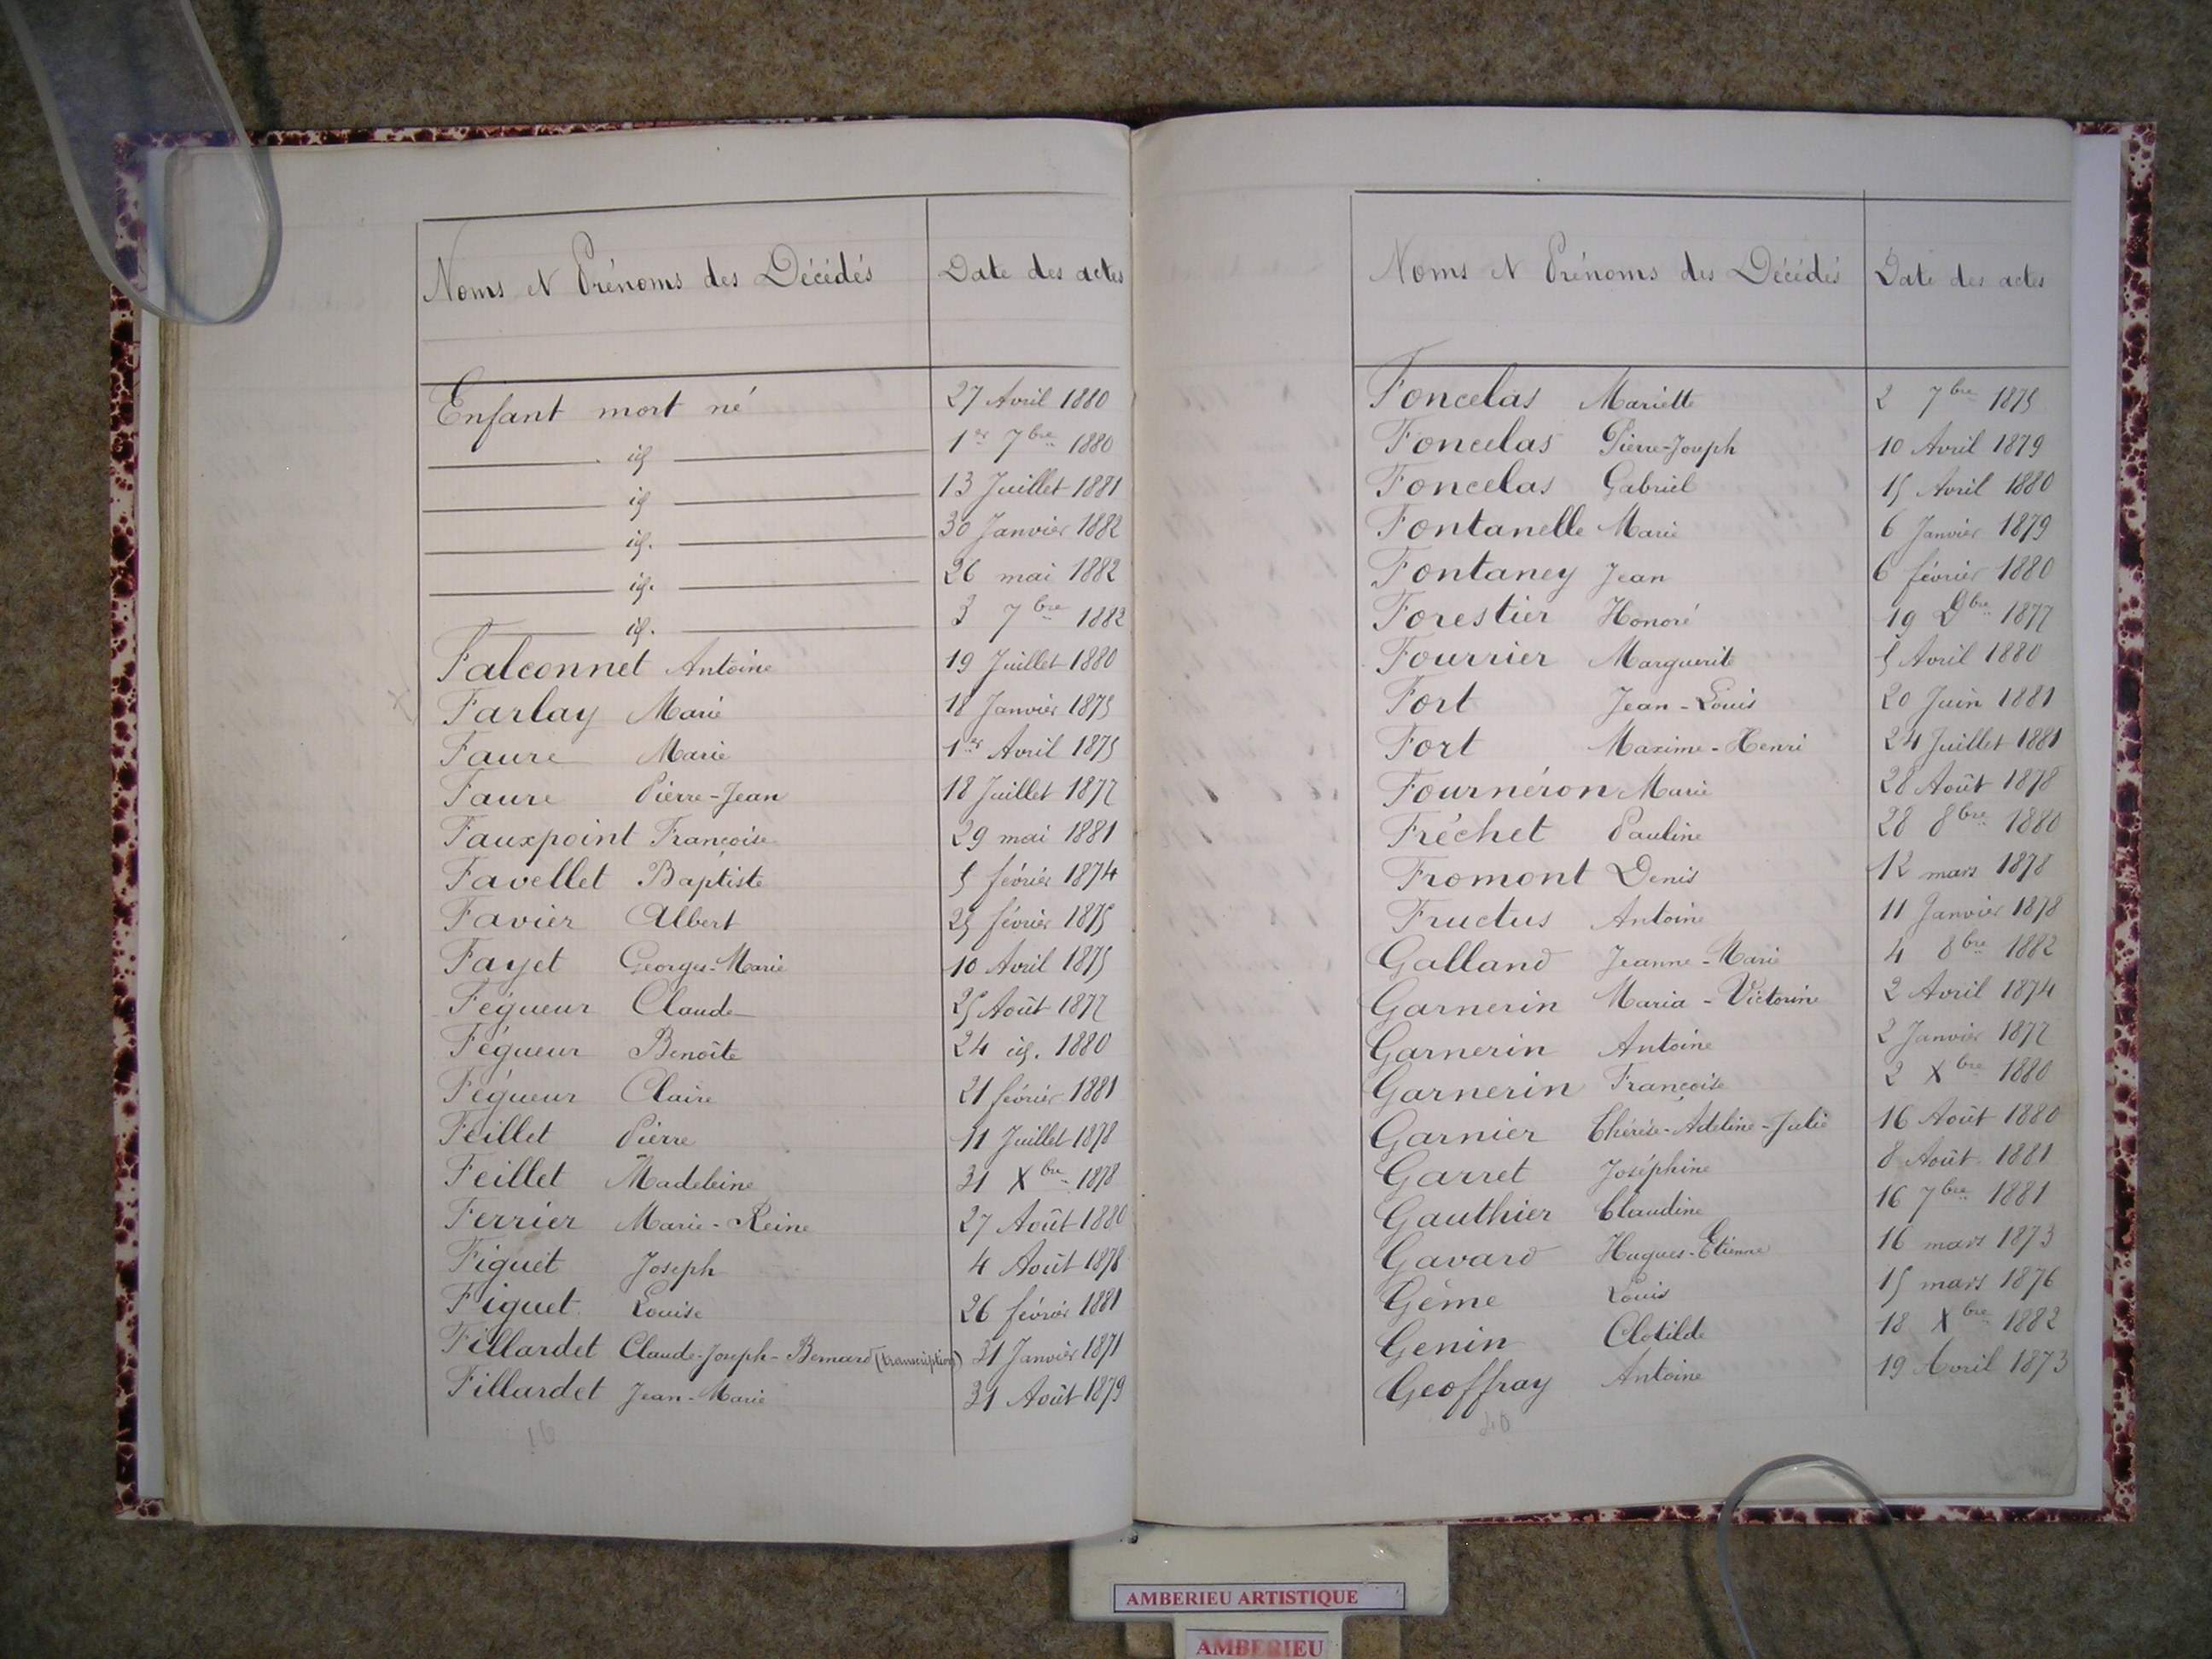 Noms et Prénoms des Décédés Date des actes
Enfant mort né 27 Avril 1880
id 1er 7bre 1880
id 13 Juillet 1881
id. 30 Janvier 1882
id. 26 mai 1882
id. 3 7bre 1882
Falconnet Antoine 19 Juillet 1880
Farlay Marie 18 Janvier 1875
Faure Marie 1er Avril 1875
Faure Pierre-Jean 18 Juillet 1877
Fauxpoint Françoise 29 mai 1881
Favellet Baptiste 5 février 1874
Favier Albert 25 février 1875
Fayet Georges-Marie 10 Avril 1875
Fégueur Claude 25 Août 1877
Fégueur Benoîte 24 id. 1880
Fégueur Claire 21 février 1881
Feillet Pierre 11 Juillet 1878
Feillet Madeleine 31 Xbre 1878
Ferrier Marie-Reine 27 Août 1880
Figuet Joseph 4 Août 1878
Figuet Louise 26 février 1881
Fillardet Claude-Joseph-Bernard (transcription) 31 Janvier 1871
Fillardet Jean-Marie 31 Août 1879
Noms et Prénoms des Décédés Date des actes
Foncelas Mariette 2 7bre 1875
Foncelas Pierre-Joseph 10 Avril 1879
Foncelas Gabriel 15 Avril 1880
Fontanelle Marie 6 Janvier 1879
Fontaney Jean 6 février 1880
Forestier Honoré 19 9bre 1877
Fourrier Marguerite 5 Avril 1880
Fort Jean-Louis 20 Juin 1881
Fort Maxime-Henri 24 Juillet 1881
Fournéron Marie 28 Août 1878
Fréchet Pauline 28 8bre 1880
Fromont Denis 12 mars 1878
Fructus Antoine 11 Janvier 1878
Galland Jeanne-Marie 4 8bre 1882
Garnerin Maria-Victorine 2 Avril 1874
Garnerin Antoine 2 Janvier 1877
Garnerin Françoise 2 Xbre 1880
Garnier Thérèse-Adeline-Julie 16 Août 1880
Garret Joséphine 8 Août 1881
Gauthier Claudine 16 7bre 1881
Gavard Hugues-Etienne 16 mars 1873
Gême Louis 15 mars 1876
Genin Clotilde 18 Xbre 1882
Geoffray Antoine 19 Avril 1873
AMBERIEU ARTISTIQUE
AMBERIEU